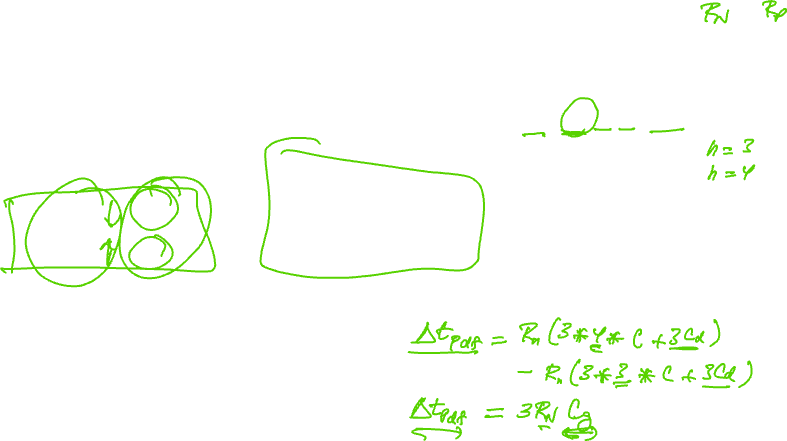 R_N R_P
h = 3
h = 4
Δt_pdf = R_n (3 * 4 * C + 3C_d)
- R_n (3 * 3 * C + 3C_d)
Δt_pdf = 3 R_N C_g